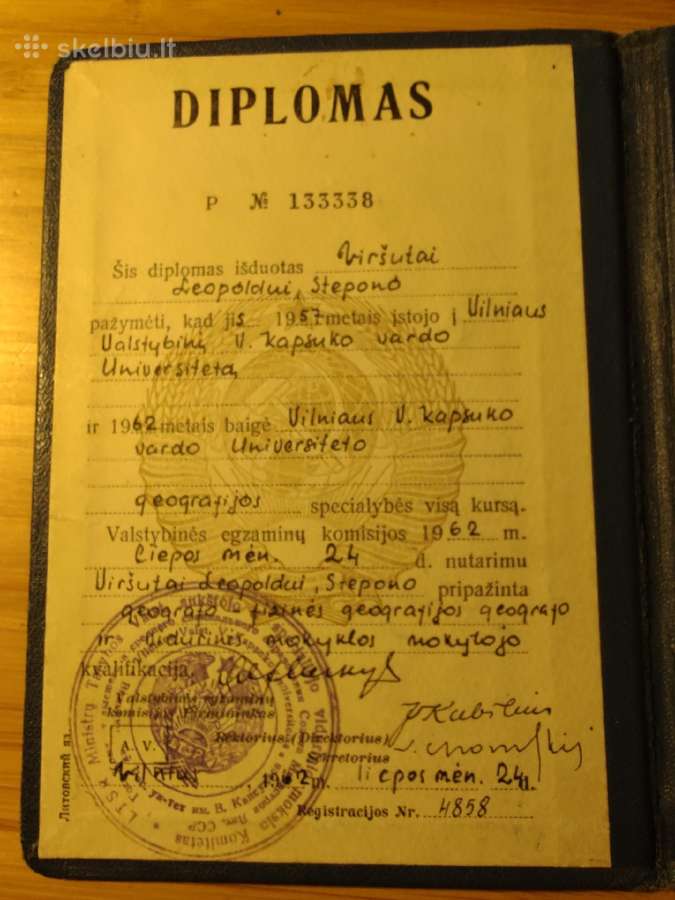 skelbiu.lt
DIPLOMAS
P № 133338
Šis diplomas išduotas Viršutai
Leopoldui, Stepono
pažymėti, kad jis 1957 metais įstojo į Vilniaus
Valstybinį V. Kapsuko vardo
Universitetą
ir 1962 metais baigė Vilniaus V. Kapsuko
vardo Universiteto
geografijos specialybės visą kursą.
Valstybinės egzaminų komisijos 1962 m.
liepos mėn. 24 d. nutarimu
Viršutai Leopoldui, Stepono pripažinta
geografo fizinės geografijos geografo
ir vidurinės mokyklos mokytojo
kvalifikacija.
Valstybinės egzaminų
komisijos Pirmininkas
J Kubilius
Rektorius (Direktorius)
Sekretorius
A. V.
Vilnius, 1962 m. liepos mėn. 24 d.
Registracijos Nr. 4858
Литовский яз.
LTSR Ministrų Tarybos Valst. aukštojo ir specialiojo vidurinio mokslo Komitetas